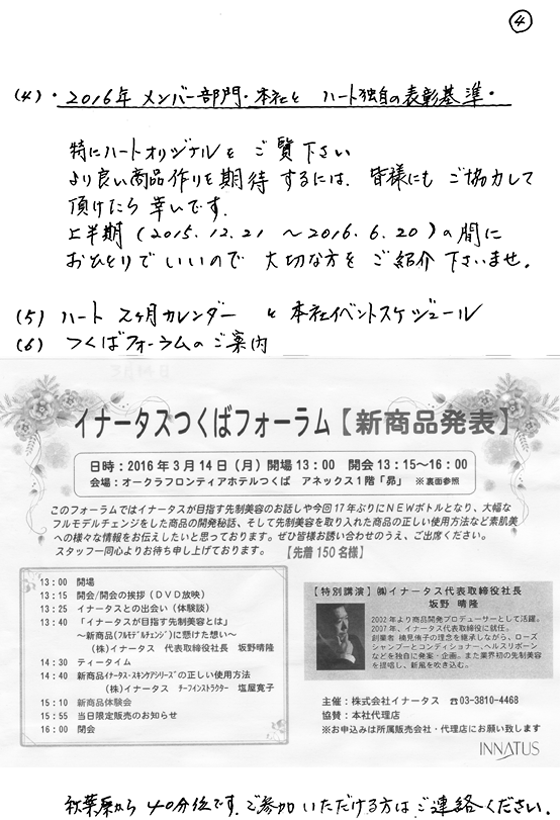 ④
(4)・2016年 メンバー部門・本社と ハート独自の表彰基準・
特にハートオリジナルを ご覧下さい
より良い商品作りを期待するには、皆様にも ご協力して
頂けたら幸いです.
上半期 (2015.12.21 〜2016.6.20)の間に
おひとりでいいので 大切な方を ご紹介 下さいませ。
(5) ハート 2ヶ月カレンダー と 本社イベントスケジュール
(6) つくばフォーラムのご案内
イナータスつくばフォーラム【新商品発表】
日時：2016年3月14日（月）開場13：00 開会13：15〜16：00
会場：オークラフロンティアホテルつくば アネックス1階「昴」 ※裏面参照
このフォーラムではイナータスが目指す先制美容のお話しや今回17年ぶりにNEWボトルとなり、大幅な
フルモデルチェンジをした商品の開発秘話、そして先制美容を取り入れた商品の正しい使用方法など素肌美
への様々な情報をお伝えしたいと思っております。ぜひ皆様お誘い合わせのうえ、ご出席ください。
スタッフ一同心よりお待ち申し上げております。 【先着150名様】
13：00 開場
13：15 開会/開会の挨拶（DVD放映）
13：25 イナータスとの出会い（体験談）
13：40 「イナータスが目指す先制美容とは」
〜新商品(フルモデルチェンジ)に懸けた想い〜
（株）イナータス 代表取締役社長 坂野晴隆
14：30 ティータイム
14：40 新商品イナータス・スキンケアシリーズの正しい使用方法
（株）イナータス チーフインストラクター 塩屋寛子
15：10 新商品体験会
15：55 当日限定販売のお知らせ
16：00 閉会
【特別講演】㈱イナータス代表取締役社長
坂野 晴隆
2002年より商品開発プロデューサーとして活躍。
2007年、イナータス代表取締役に就任。
創業者 楠見侑子の理念を継承しながら、ローズ
シャンプーとコンディショナー、ヘルスリボーン
などを独自に発案・企画。また業界初の先制美容
を提唱し、新風を吹き込む。
主催：株式会社イナータス ☎03-3810-4468
協賛：本社代理店
※お申込みは所属販売会社・代理店にお願い致します
INNATUS
秋葉原から 40分位です。ご参加 いただける方は ご連絡ください.